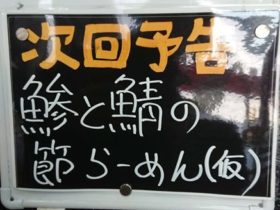 次回予告
鯵と鯖の
節らーめん(仮)